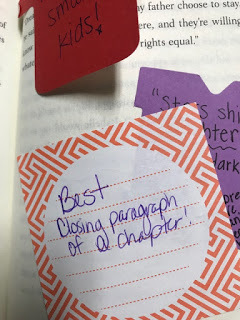 sma
kids!
my father choose to stay
ere, and they're willing
rights equal."
"Stars shi
dark
Best
Closing paragraph
of a chapter!